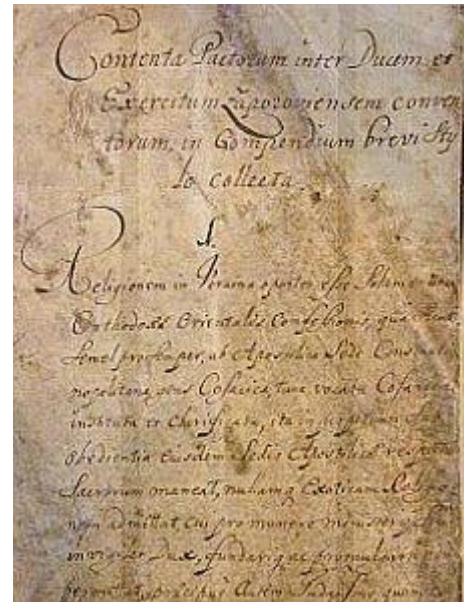 Contenta Pactorum inter Ducem et
Exercitum Zaporoviensem conven
torum, in Compendium brevi Sty
lo collecta.
1.
Religionem in oportet esse
Orthodoxæ Orientalis Confessionis, quæ
semel pro semper, ab Apostolica Sede Con
nopolitana, gens Cosacica, tunc vocata
instituta et Christificata, ita in perpetuum
obedientia eiusdem Sedis Apostolicæ
Sacrorum maneat, nullamq Exoticam
nem admittat, cui pro munere
invigilet Dux, fundari, ac promulgari
permittat, præcipue autem